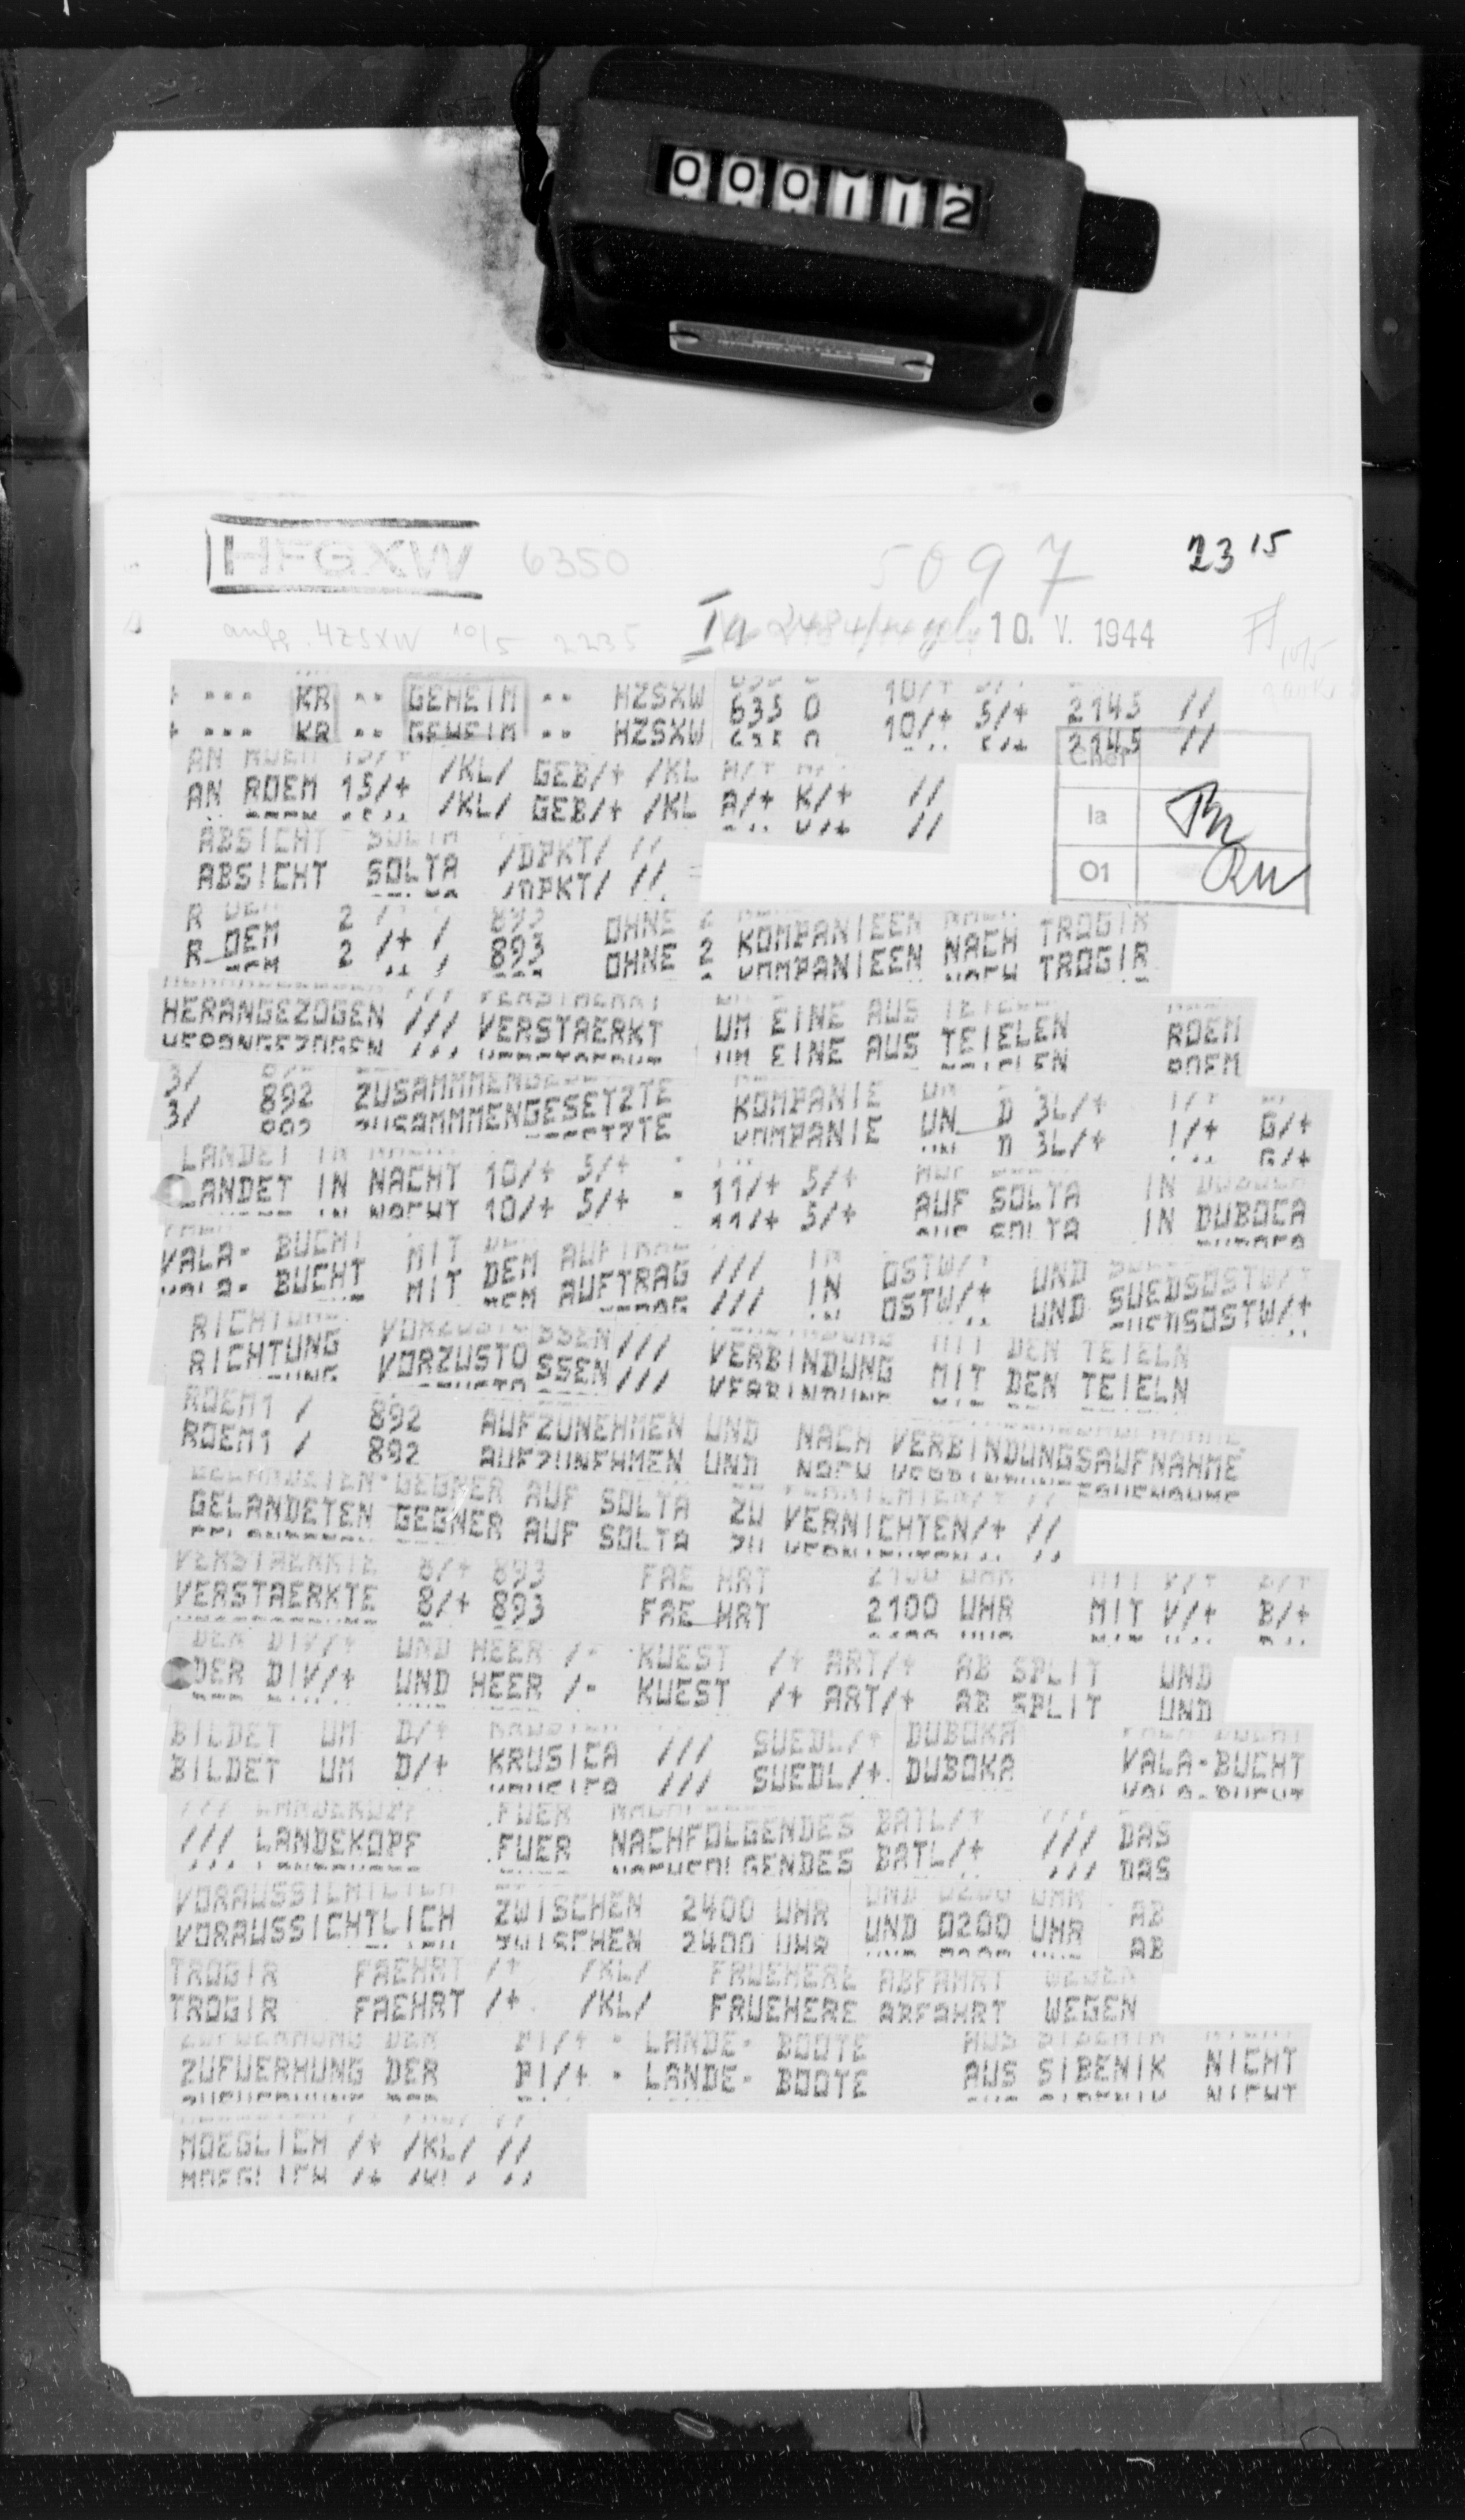 000112
HFGXW 6350 5097 23 15
Ia 10. V. 1944
+ --- KR -- GEHEIM -- HZSXW 635 0 10/+ 5/+ 2145 //
AN ROEM 15/+ /KL/ GEB/+ /KL A/+ K/+ //
Chef
Ia
O1
ABSICHT SOLTA /DPKT/ //
R OEM 2 /+ / 893 OHNE 2 KOMPANIEEN NACH TROGIR
HERANGEZOGEN /// VERSTAERKT UM EINE AUS TEIELEN ROEM
3/ 892 ZUSAMMMENGESETZTE KOMPANIE UN D 3L/+ I/+ G/+
LANDET IN NACHT 10/+ 5/+ - 11/+ 5/+ AUF SOLTA IN DUBOCA
VALA- BUCHT MIT DEM AUFTRAG /// IN OSTW/+ UND SUEDSOSTW/+
RICHTUNG VORZUSTO SSEN /// VERBINDUNG MIT DEN TEIELN
ROEM1 / 892 AUFZUNEHMEN UND NACH VERBINDUNGSAUFNAHME
GELANDETEN GEGNER AUF SOLTA ZU VERNICHTEN/+ //
VERSTAERKTE 8/+ 893 FAE HRT 2100 UHR MIT V/+ B/+
DER DIV/+ UND HEER /- KUEST /+ ART/+ AB SPLIT UND
BILDET UM D/+ KRUSICA /// SUEDL/+ DUBOKA VALA-BUCHT
/// LANDEKOPF FUER NACHFOLGENDES BATL/+ /// DAS
VORAUSSICHTLICH ZWISCHEN 2400 UHR UND 0200 UHR AB
TROGIR FAEHRT /+ /KL/ FRUEHERE ABFAHRT WEGEN
ZUFUERHUNG DER PI/+ - LANDE- BOOTE AUS SIBENIK NICHT
MOEGLICH /+ /KL/ //